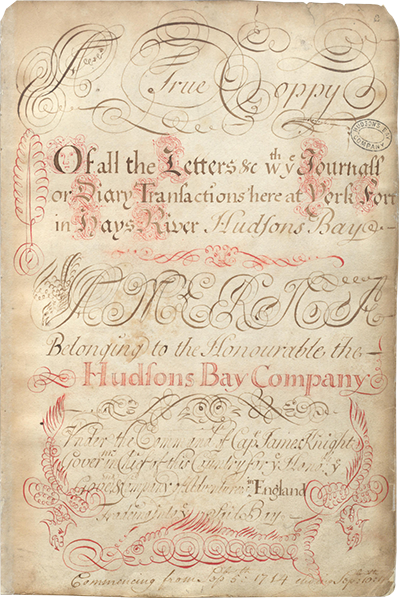 A True Coppy
HUDSONS BAY
COMPANY
Of all the Letters &c wth ye Journall
or Diary Transactions here at York Fort
in Hays River Hudsons Bay
AMERICA
Belonging to the Honourable the
Hudsons Bay Company
Under the Command of Capt James Knight
of this Country for ye Hono ye
Company of England
Trading into Bay
Commencing from Sepr 1714